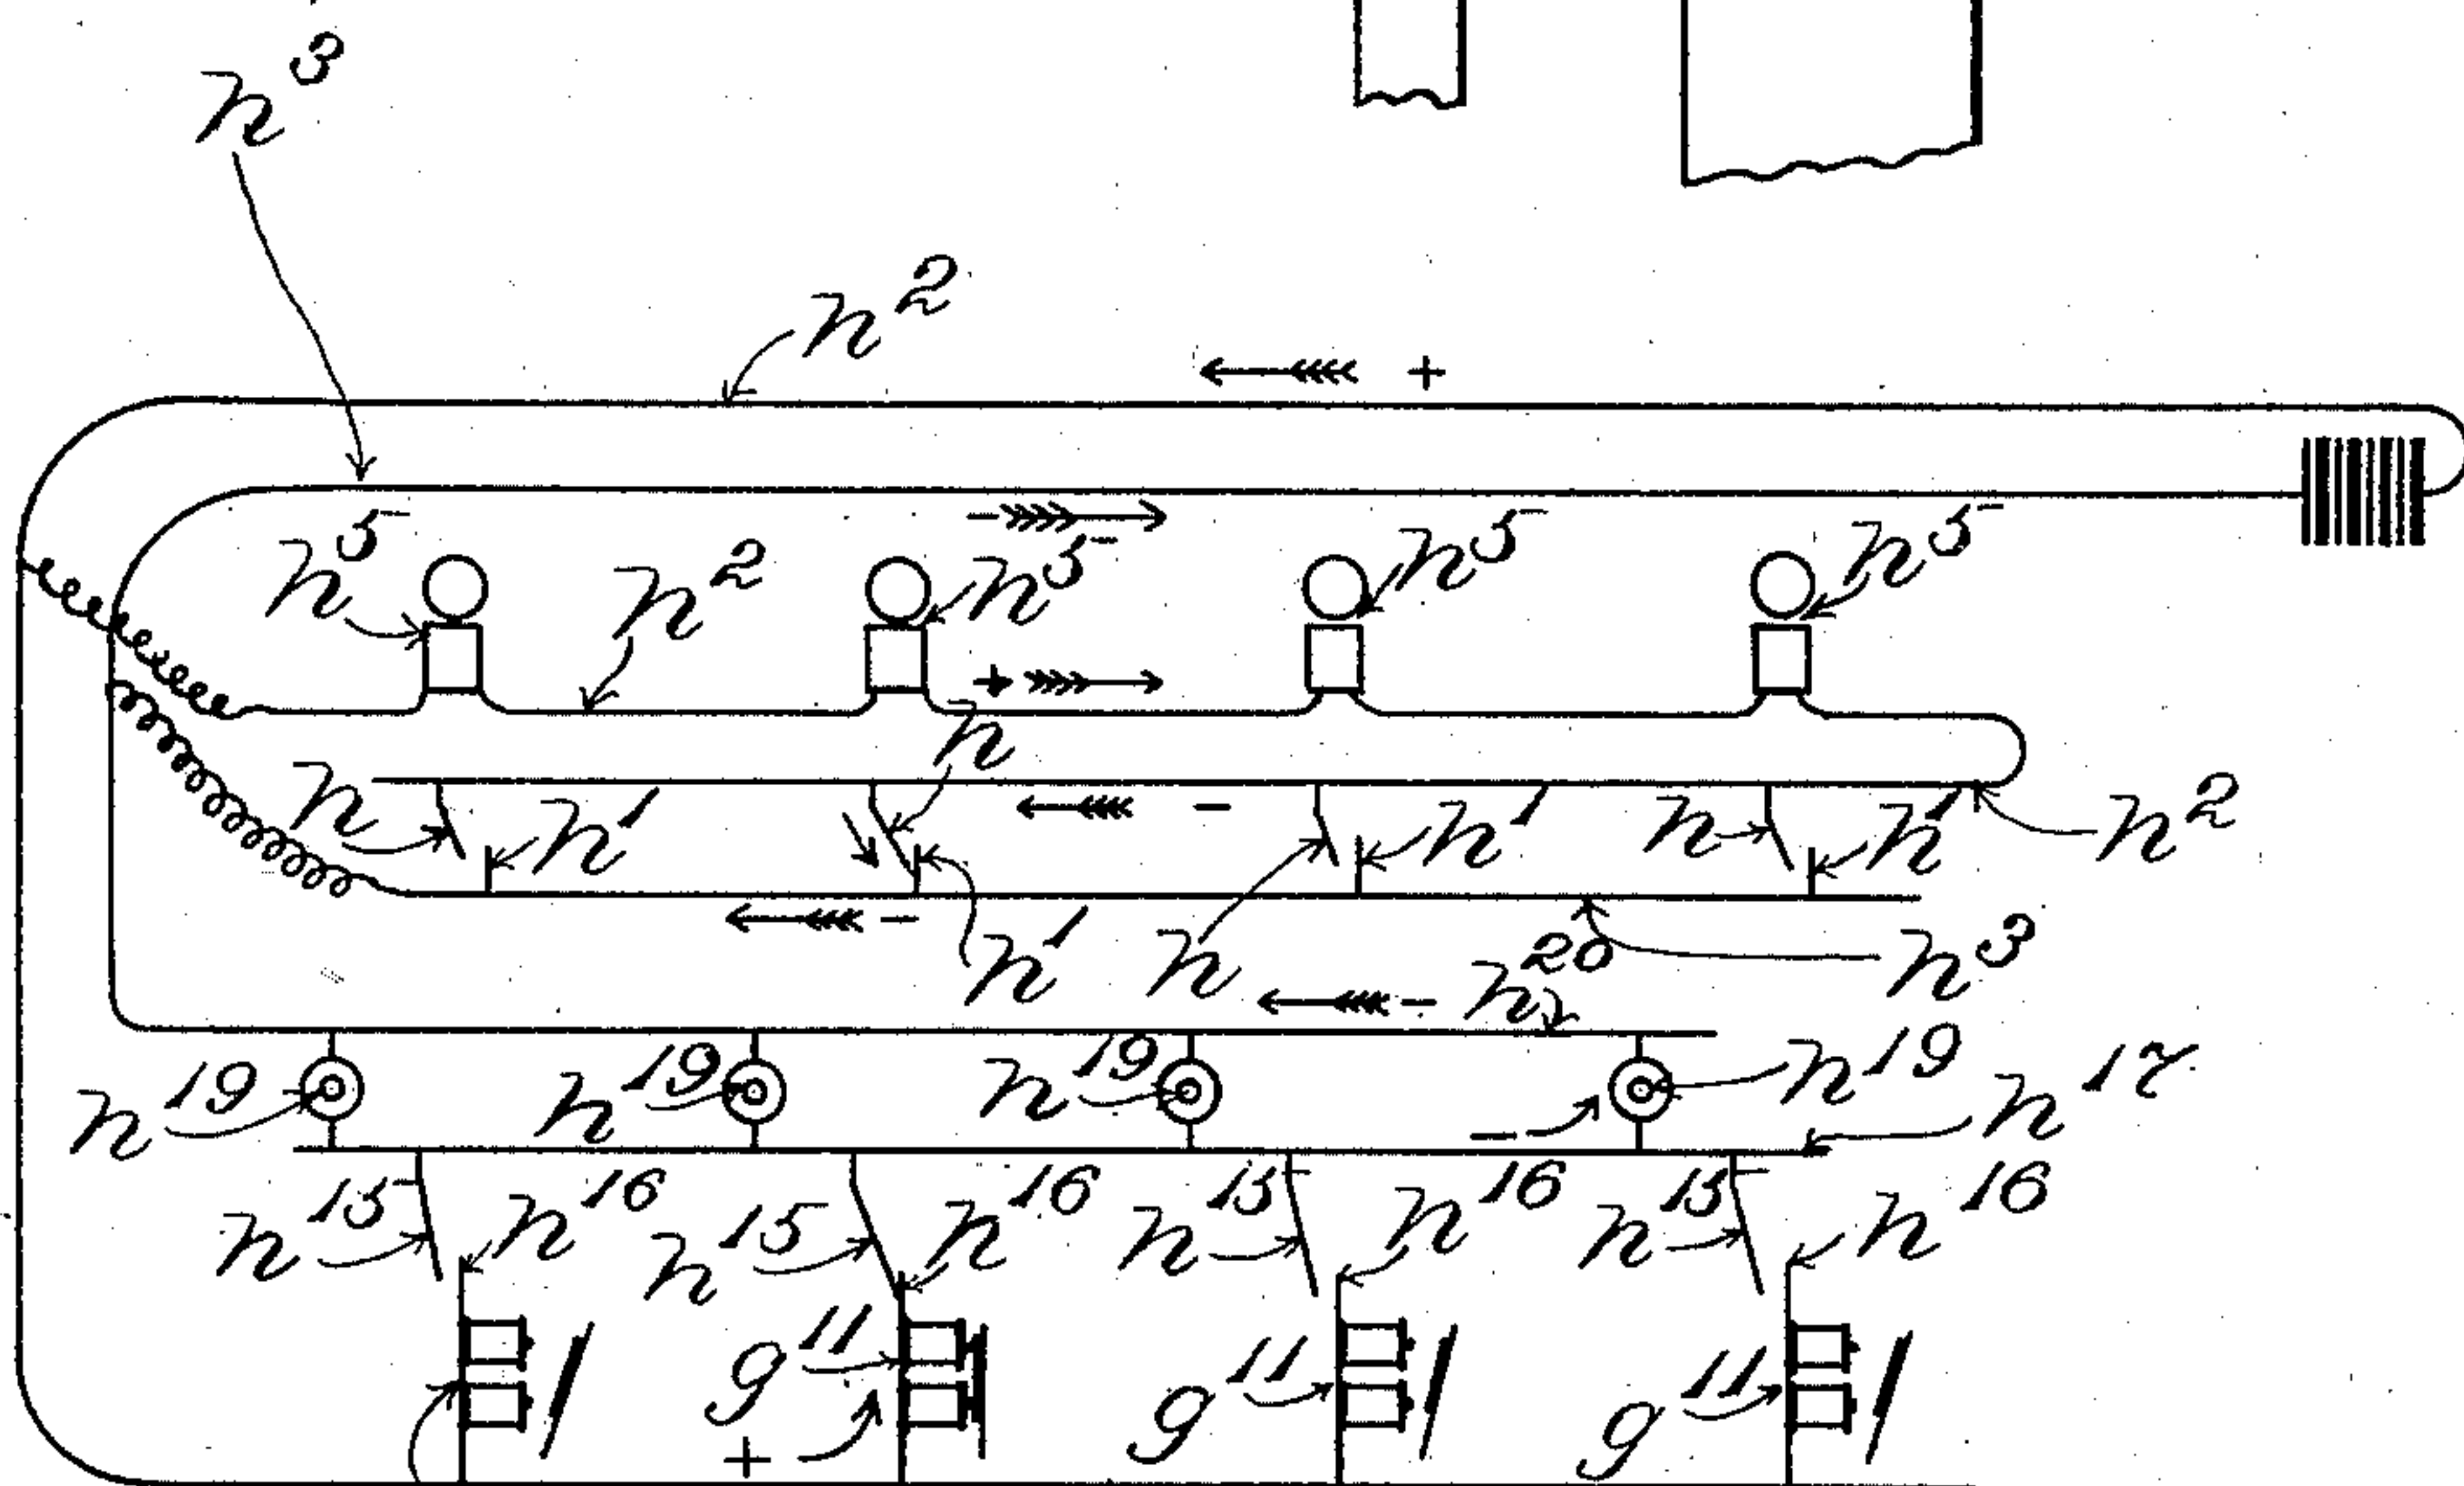 n³
n²
+
−
n⁵ n² n⁵ n⁵ n⁵
+
n
n n¹ − n¹ n n¹ n²
−
n¹ n n³
− n²⁰
n¹⁹ n¹⁹ n¹⁹ n¹⁹ n¹⁷
−
n¹⁵ n¹⁶ n¹⁵ n¹⁶ n¹⁵ n¹⁶ n¹⁵ n¹⁶
g¹¹ g¹¹ g¹¹
+